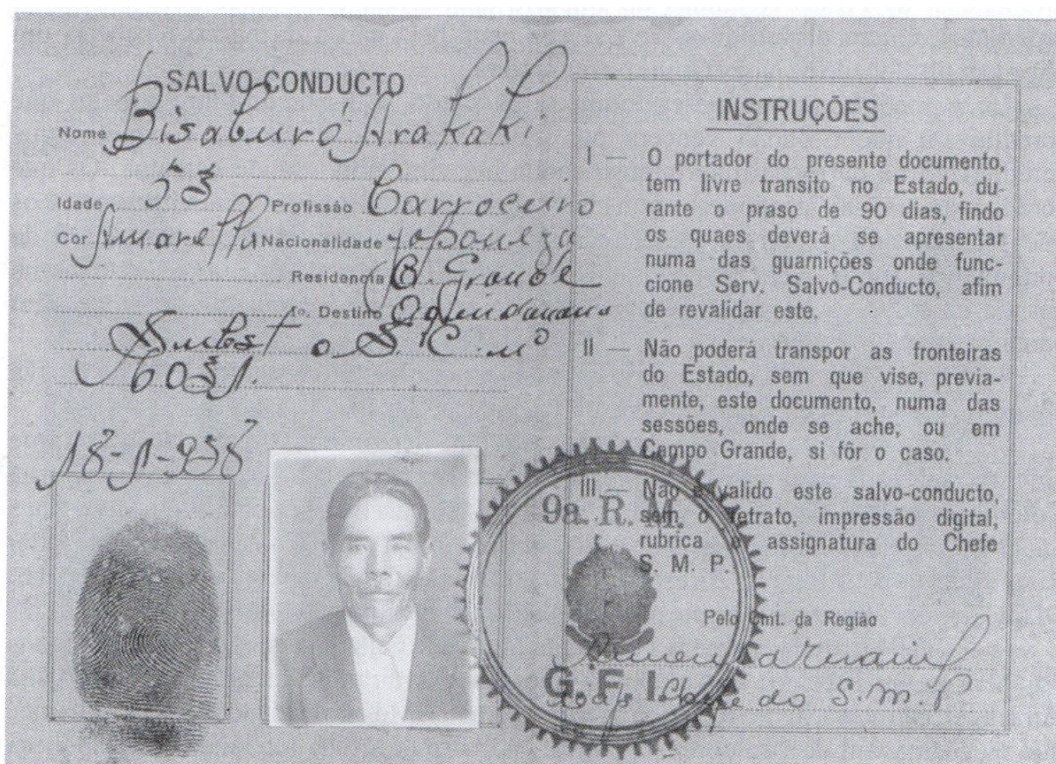 SALVO-CONDUCTO
Nome Bisaburó Arakaki
Idade 53 Profissão Carroceiro
Côr Amarella Nacionalidade japoneza
Residencia C. Grande
Destino Aquidauana
Subst o S.C. nº
6031.
18-1-938
INSTRUÇÕES
I — O portador do presente documento,
tem livre transito no Estado, du-
rante o praso de 90 dias, findo
os quaes deverá se apresentar
numa das guarnições onde func-
cione Serv. Salvo-Conducto, afim
de revalidar este.
II — Não poderá transpor as fronteiras
do Estado, sem que vise, previa-
mente, este documento, numa das
sessões, onde se ache, ou em
Campo Grande, si fôr o caso.
III — Não é valido este salvo-conducto,
sem o retrato, impressão digital,
rubrica e assignatura do Chefe
S. M. P.
9a. R.
G. F. I.
Pelo Cmt. da Região
do S.M.P